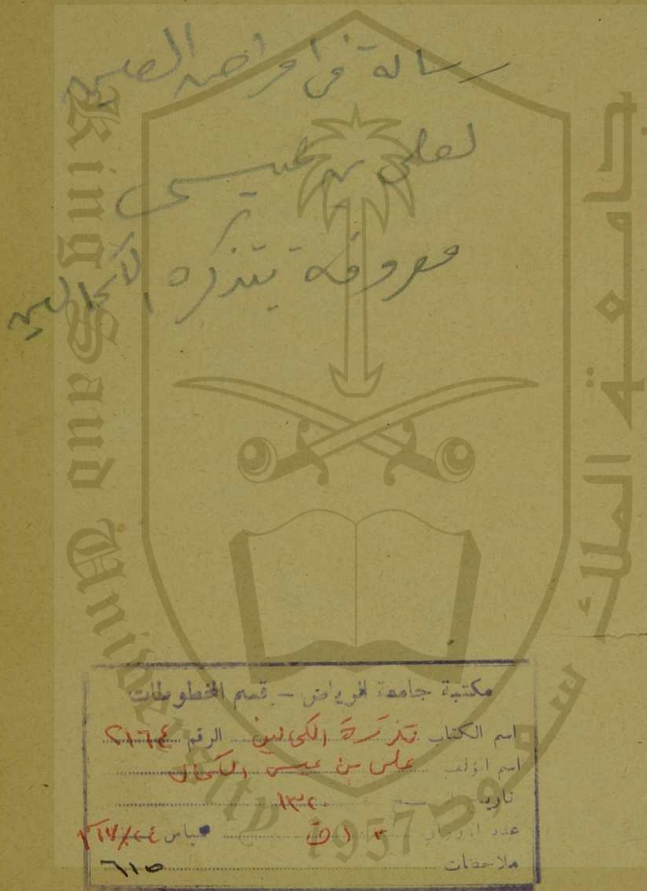 رسالة في امراض العين
لعلى بن عيسى
معروفه بتذكرة الكحالين
King Saud University
جامعة الملك سعود
1957
مكتبة جامعة الرياض - قسم المخطوطات
اسم الكتاب تذكرة الكحالين الرقم ٢١٦٤
اسم المؤلف علي بن عيسى الكحال
تاريخ النسخ ١٣٢٠
عدد الاوراق
ملاحظات ٦١٥